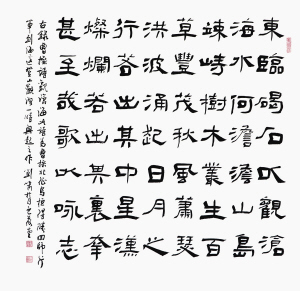 東臨碣石以觀滄
海水何澹澹山島
竦峙樹木叢生百
草豐茂秋風蕭瑟
洪波涌起日月之
行若出其中星漢
燦爛若出其裏幸
甚至哉歌以咏志
右錄曹操詩觀滄海